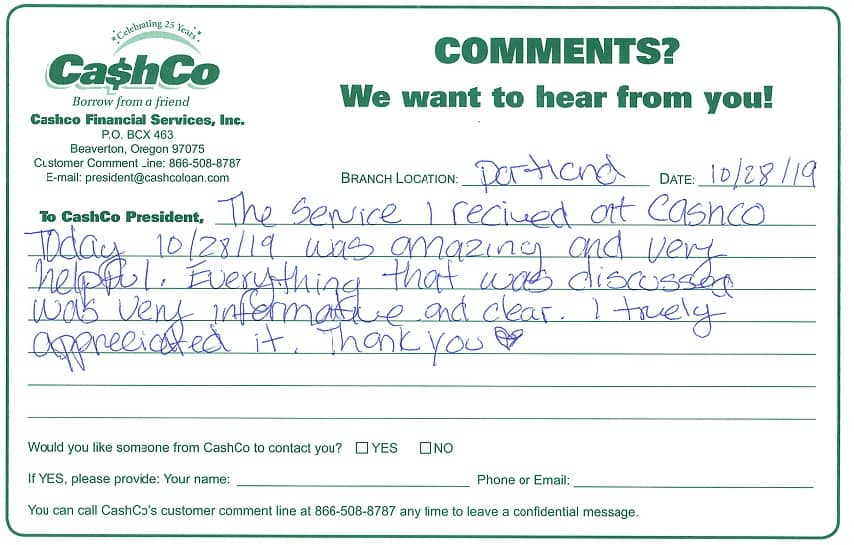 Celebrating 25 Years
Ca$hCo
Borrow from a friend
Cashco Financial Services, Inc.
P.O. BCX 463
Beaverton, Oregon 97075
Customer Comment Line: 866-508-8787
E-mail: president@cashcoloan.com
COMMENTS?
We want to hear from you!
BRANCH LOCATION: Portland DATE: 10/28/19
To CashCo President, The Service I recived att Cashco
Today 10/28/19 was amazing and very
helpful. Everything that was discussed
was very informative and clear. I truely
appreciated it. Thank you ♡
Would you like someone from CashCo to contact you? ☐ YES ☐ NO
If YES, please provide: Your name: Phone or Email:
You can call CashCo's customer comment line at 866-508-8787 any time to leave a confidential message.